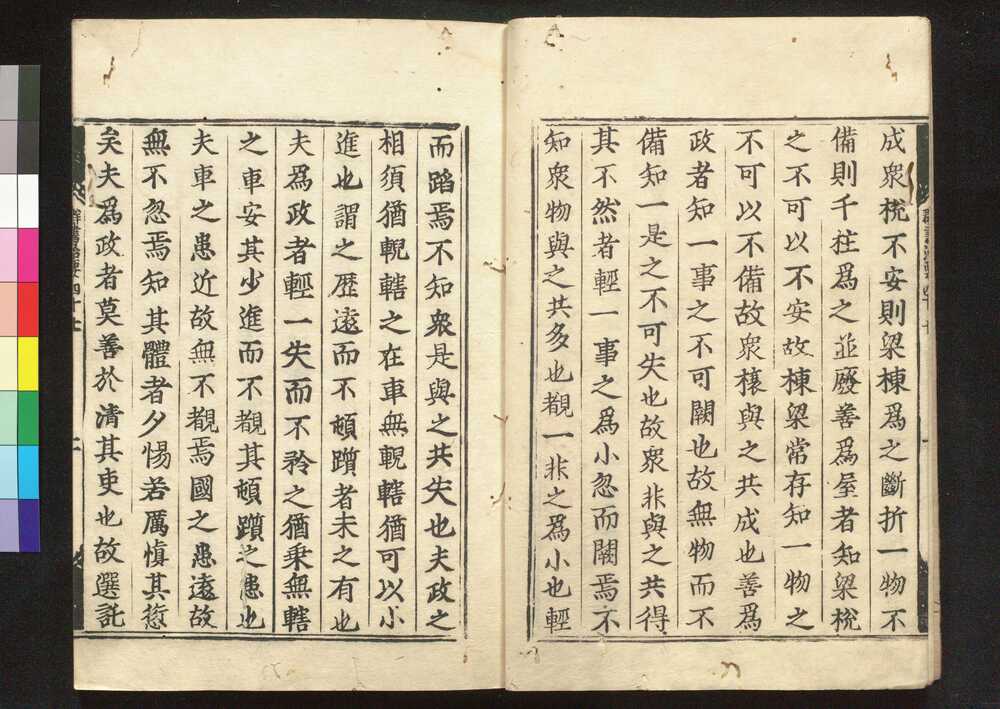 成衆梲不安則梁棟爲之斷折一物不
備則千柱爲之並廢善爲屋者知梁梲
之不可以不安故棟梁常存知一物之
不可以不備故衆榱與之共成也善爲
政者知一事之不可闕也故無物而不
備知一是之不可失也故衆非與之共得
其不然者輕一事之爲小忽而闕焉不
知衆物與之共多也覩一非之爲小也輕
而蹈焉不知衆是與之共失也夫政之
相須猶輗轄之在車無輗轄猶可以小
進也謂之歷遠而不頓躓者未之有也
夫爲政者輕一失而不矜之猶乘無轄
之車安其少進而不覩其頓躓之患也
夫車之患近故無不覩焉國之患遠故
無不忽焉知其體者夕惕若厲愼其愆
矣夫爲政者莫善於清其吏也故選託
群書治要四十七
二